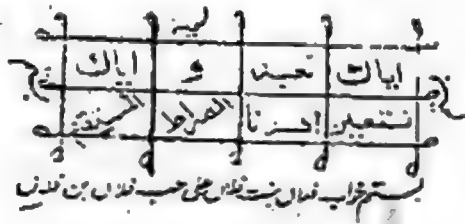 اياك نعبد و اياك
نستعين اهدنا الصراط المستقيم
بستم خواب فلاں بنت فلاں على حب فلاں بن فلاں